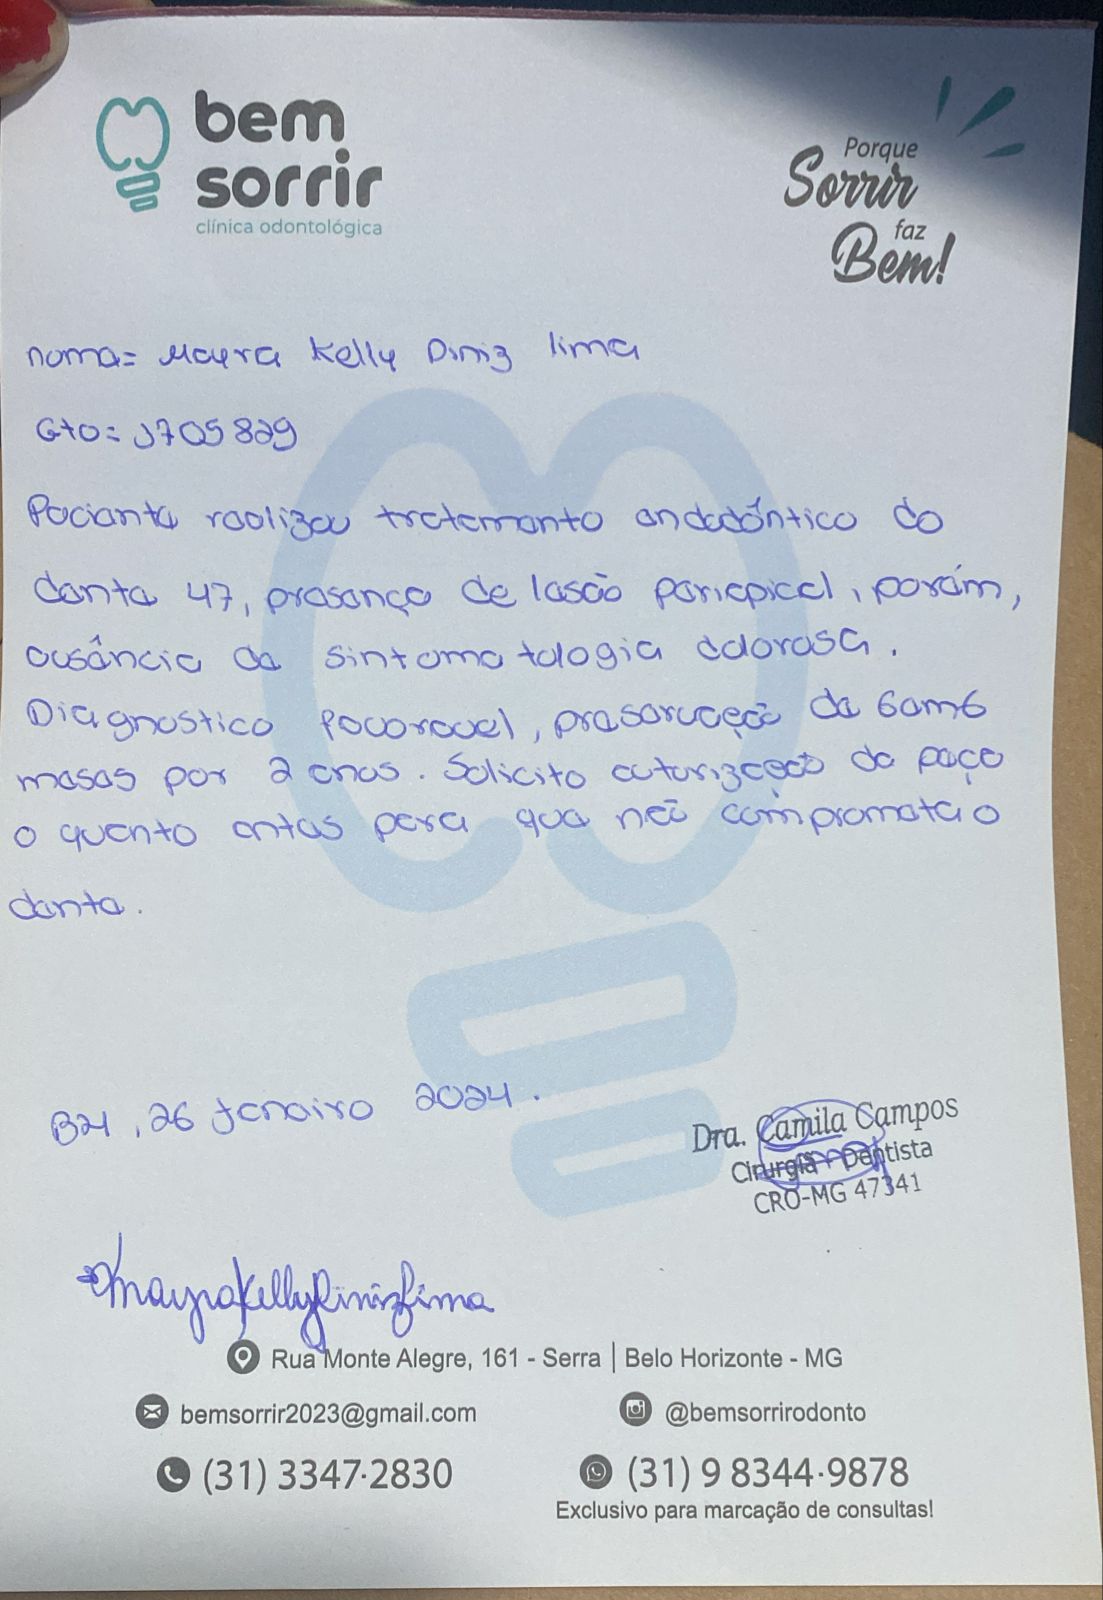 bem
sorrir
clínica odontológica
Porque
Sorrir
faz
Bem!
nome= Mayra Kelly Diniz lima
Gto= 1705829
Paciente realizou tratamento endodôntico do
dente 47, presença de lesão periapical, porém,
ausência de sintomatologia dolorosa.
Diagnostico favoravel, preservação de 6 em 6
meses por 2 anos. Solicito autorização da peça
o quanto antes para que não comprometa o
dente.
BH, 26 Janeiro 2024.
Dra. Camila Campos
Cirurgiã - Dentista
CRO-MG 47341
Mayra Kelly Diniz Lima
Rua Monte Alegre, 161 - Serra | Belo Horizonte - MG
bemsorrir2023@gmail.com @bemsorrirodonto
(31) 3347-2830 (31) 9 8344-9878
Exclusivo para marcação de consultas!